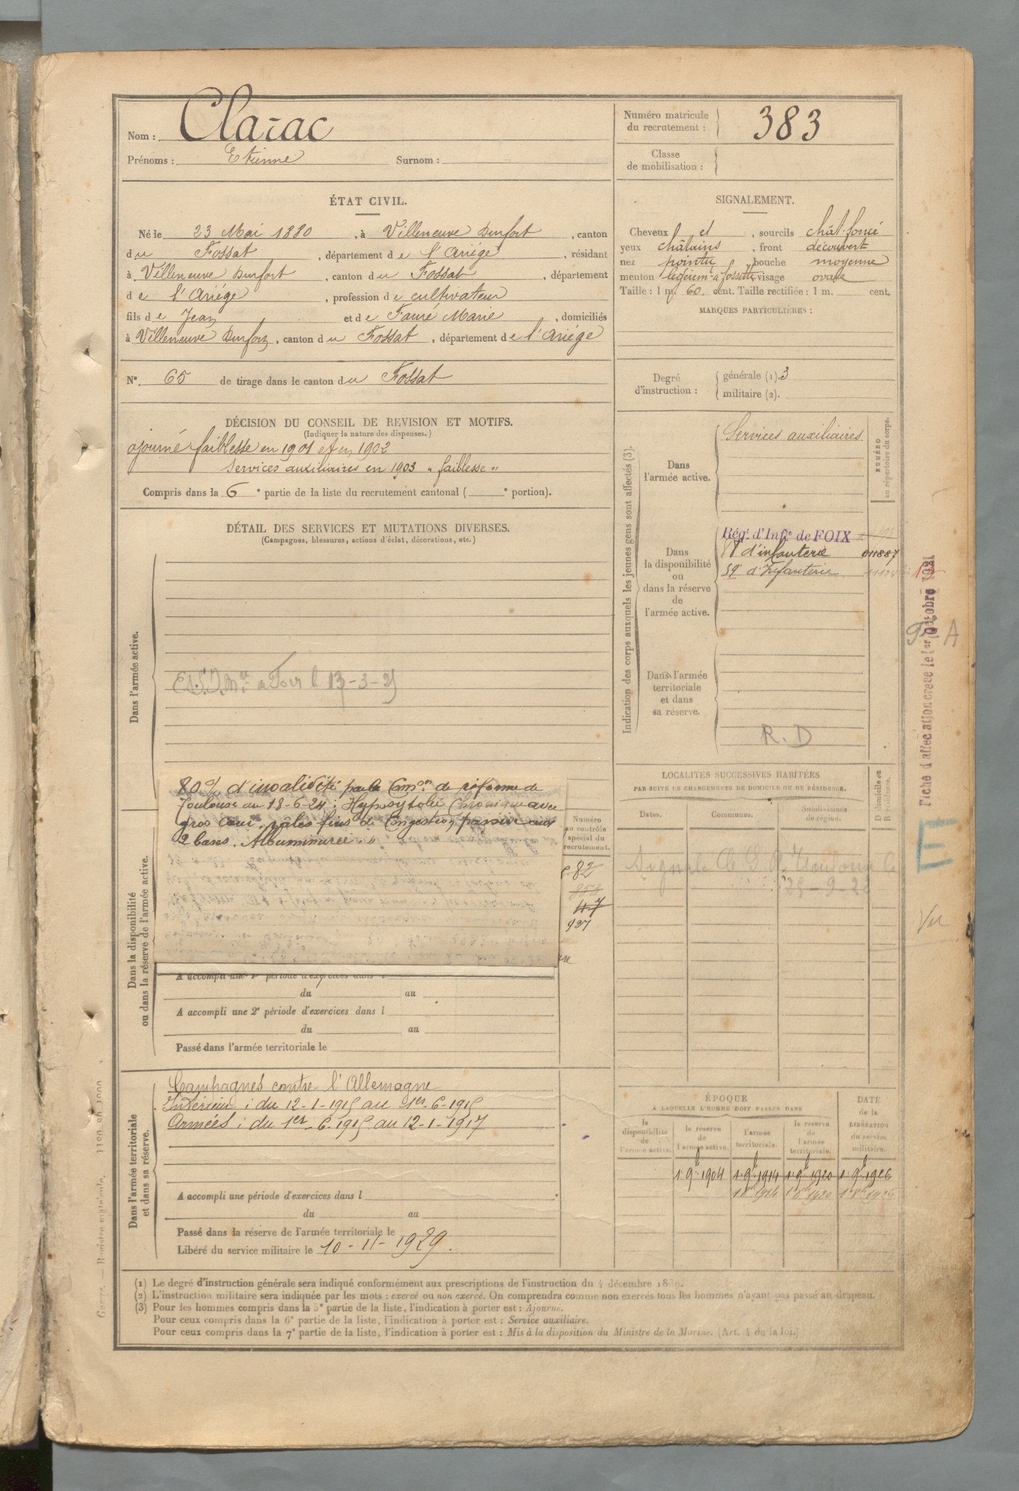 Nom : Clarac
Prénoms : Etienne Surnom :
Numéro matricule du recrutement : 383
Classe de mobilisation :
ÉTAT CIVIL.
Né le 23 Mai 1880, à Villeneuve Durfort, canton
du Fossat, département de l'Ariége, résidant
à Villeneuve Durfort, canton du Fossat, département
de l'Ariége, profession de cultivateur
fils de Jean et de Fauré Marie, domiciliés
à Villeneuve Durfort, canton du Fossat, département de l'Ariége
N° 65 de tirage dans le canton du Fossat
SIGNALEMENT.
Cheveux et, sourcils chât. foncé
yeux châtains, front découvert
nez pointu, bouche moyenne
menton visage ovale
Taille : 1 m. 60 cent. Taille rectifiée : 1 m. cent.
MARQUES PARTICULIÈRES :
Degré d'instruction : générale (1). 3
militaire (2).
DÉCISION DU CONSEIL DE REVISION ET MOTIFS.
(Indiquer la nature des dispenses.)
ajourné faiblesse en 1901 et en 1902
Services auxiliaires en 1903 "faiblesse"
Compris dans la 6e partie de la liste du recrutement cantonal ( e portion).
DÉTAIL DES SERVICES ET MUTATIONS DIVERSES.
(Campagnes, blessures, actions d'éclat, décorations, etc.)
Dans l'armée active.
13-3-
80% d'invalidité par la Comon de réforme de
Toulouse du 18-6-24 : chronique avec
gros cœur, râles fins de Congestion passive aux
2 bases. Albuminurie "
Dans la disponibilité
ou dans la réserve de l'armée active.
A accompli une 1re période d'exercices dans l
du au
A accompli une 2e période d'exercices dans l
du au
Passé dans l'armée territoriale le
Numéro
au contrôle
spécial du
recrutement.
82
47
937
Dans l'armée territoriale
et dans sa réserve.
Campagnes contre l'Allemagne
Intérieur : du 12-1-1915 au 1er-6-1915
Armées : du 1er-6-1915 au 12-1-1917
A accompli une période d'exercices dans l
du au
Passé dans la réserve de l'armée territoriale le
Libéré du service militaire le 10-11-1929.
Indication des corps auxquels les jeunes gens sont affectés (3).
NUMÉRO
au répertoire du corps.
Dans
l'armée active.
Services auxiliaires
Dans
la disponibilité
ou
dans la réserve
de
l'armée active.
Régt d'Infie de FOIX
d'infanterie 011887
59e d'Infanterie
Dans l'armée
territoriale
et dans
sa réserve.
R.D
LOCALITÉS SUCCESSIVES HABITÉES
PAR SUITE DE CHANGEMENTS DE DOMICILE OU DE RÉSIDENCE.
Dates. Communes. Subdivisions de région. Domicile ou Résidence
ÉPOQUE
À LAQUELLE L'HOMME DOIT PASSER DANS
la disponibilité de l'armée active.
la réserve de l'armée active.
l'armée territoriale.
la réserve de l'armée territoriale.
DATE de la LIBÉRATION du service militaire.
1 9b 1904 1 9b 1914 1 9b 1920 1 9b 1926
Fiche d'affectation créée le 1er Octobre 1921
E
Vu
(1) Le degré d'instruction générale sera indiqué conformément aux prescriptions de l'instruction du 4 décembre
(2) L'instruction militaire sera indiquée par les mots : exercé ou non exercé. On comprendra comme non exercés tous les hommes n'ayant pas passé au drapeau.
(3) Pour les hommes compris dans la 5e partie de la liste, l'indication à porter est : Ajourné.
Pour ceux compris dans la 6e partie de la liste, l'indication à porter est : Service auxiliaire.
Pour ceux compris dans la 7e partie de la liste, l'indication à porter est : Mis à la disposition du Ministre de la Marine. (Art. 4 de la loi.)